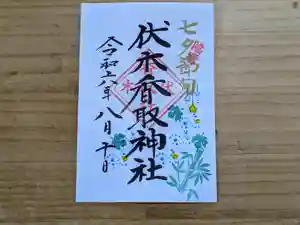 七夕
伏木香取神社
令和六年八月十日